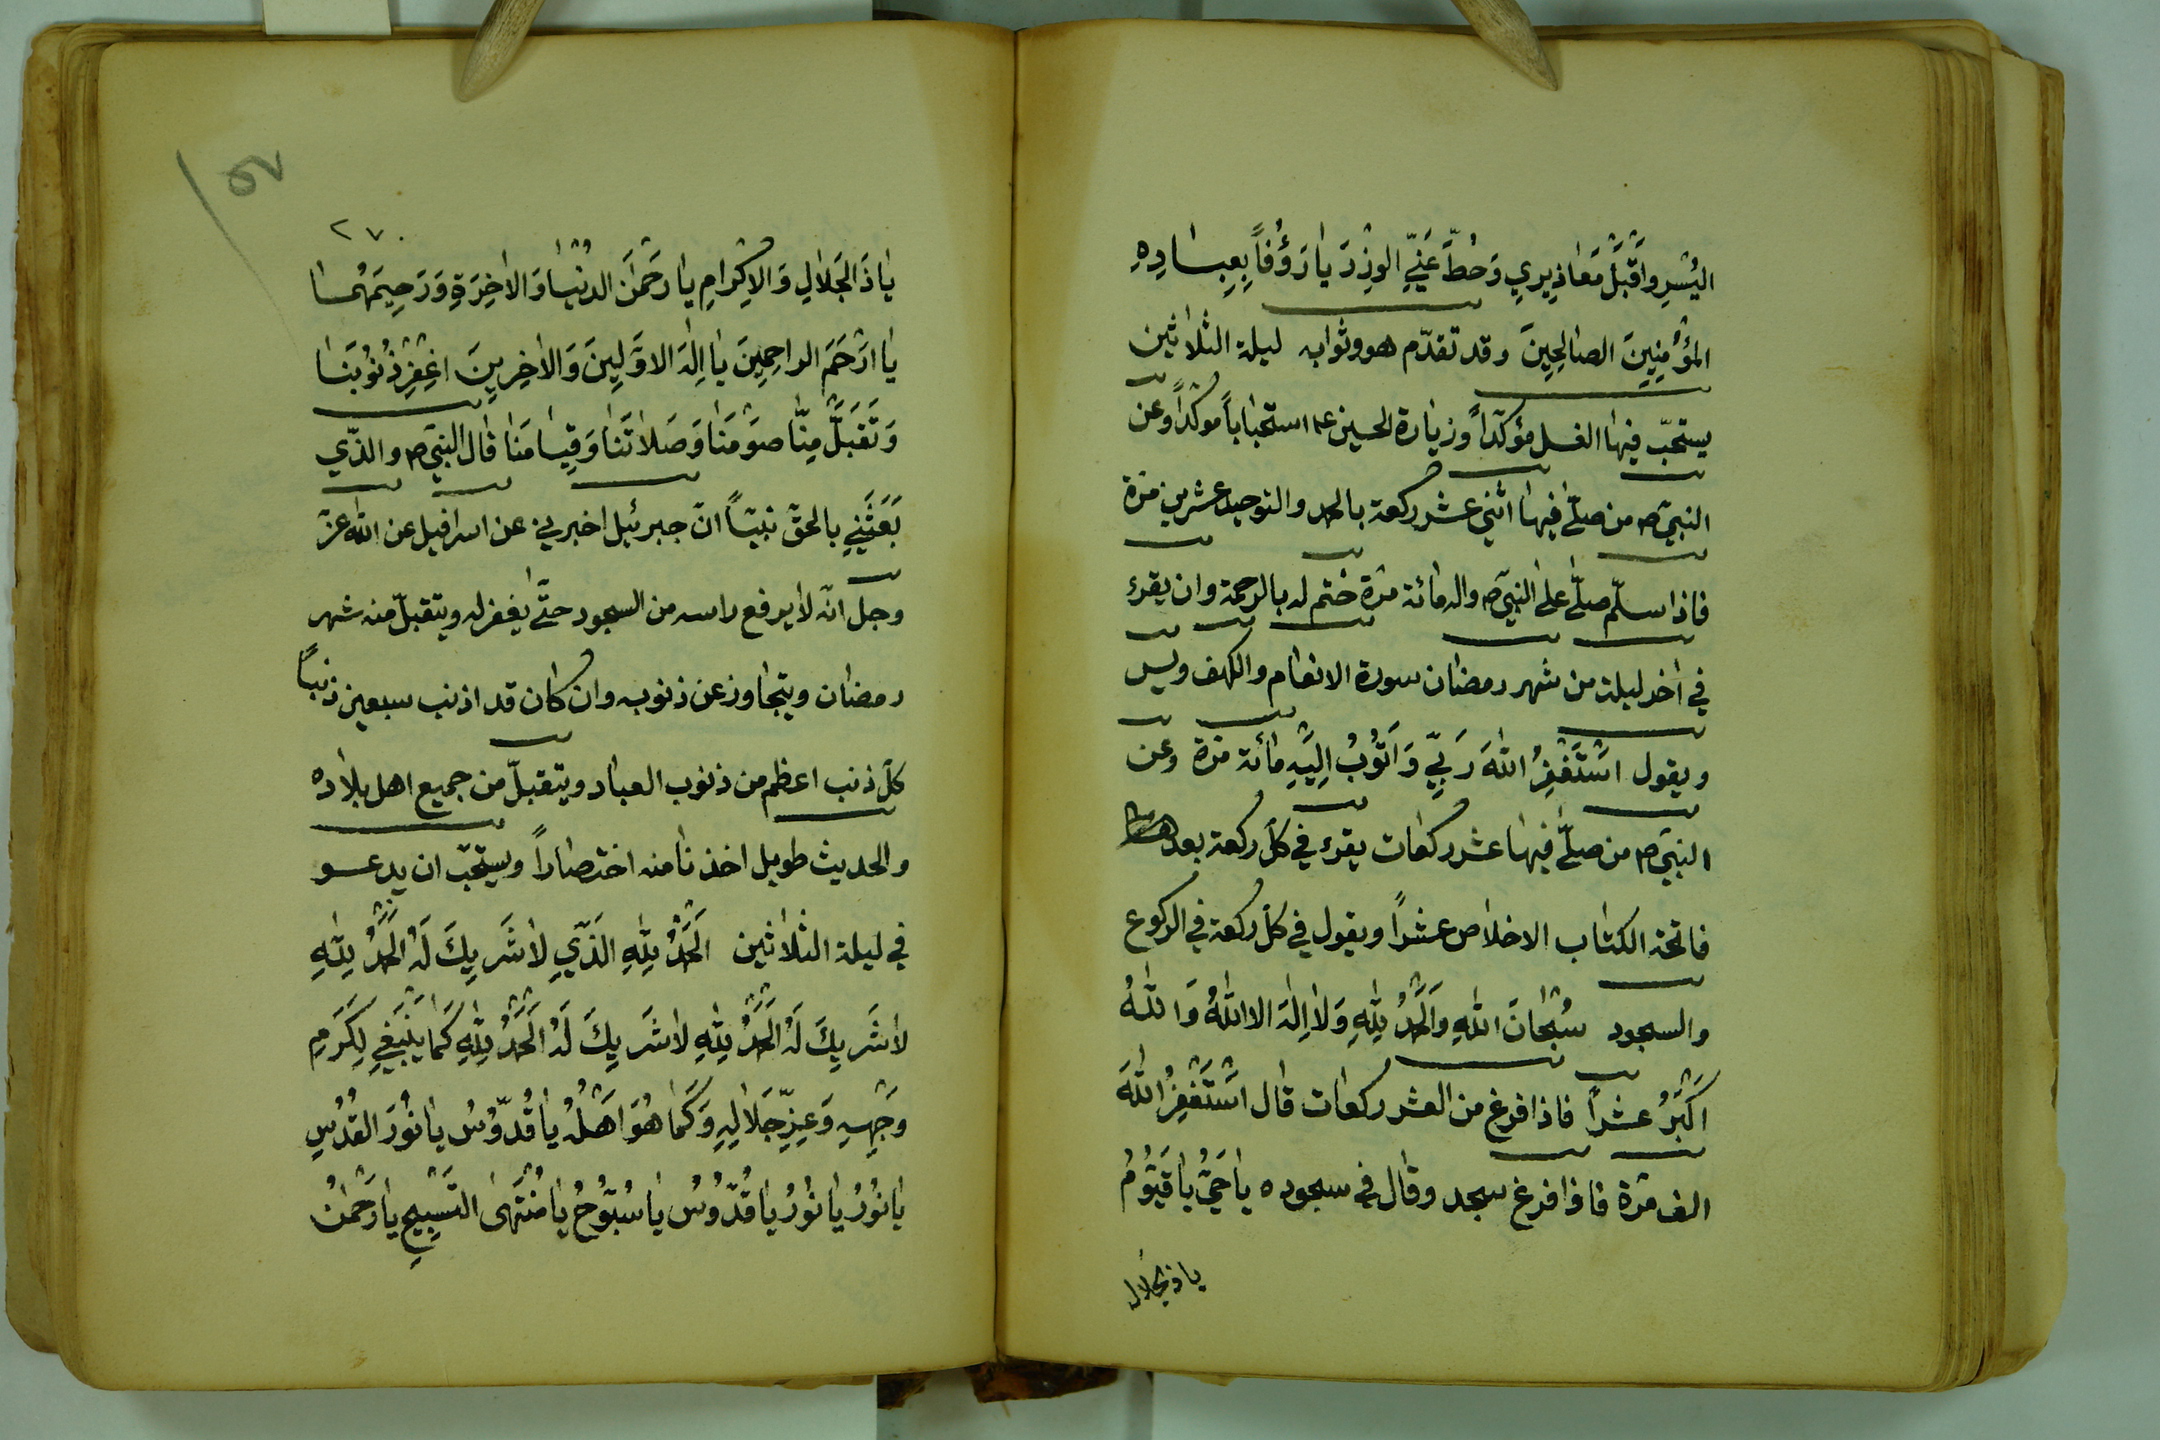 اليُسْرِ وَاقْبَلْ مَعَاذِيرِي وَحُطَّ عَنِّيَ الوِزْرَ يَا رَؤُفاً بِعِبَادِهِ
المُؤْمِنِينَ الصَالِحِينَ وقد تقدّم هو وثوابه ليلة الثلاثين
يستحبّ فيها الغسل مؤكّداً وزيارة الحسين ع استحباباً موكّداً وعن
النبيّ ص من صلّى فيها اثنى عشر ركعة بالحمد والتوحيد عشرين مرّة
فاذا سلّم صلّى على النبيّ ص واله مائة مرّة ختم له بالرحمة وان يقرء
في اخر ليلة من شهر رمضان سورة الانعام والكهف ويس
ويقول اَسْتَغْفِرُ اللهَ رَبِّي وَاَتُوْبُ اِلَيْهِ مائة مرّة وعن
النبيّ ص من صلّى فيها عشر ركعات يقرء في كلّ ركعة بعد
فاتحة الكتاب الاخلاص عشراً ويقول في كلّ ركعة في الركوع
والسجود سُبْحَانَ اللهِ وَالحَمْدُ لِلهِ وَلَا اِلهَ الا اللهُ وَاللهُ
اَكْبَرُ عشراً فاذا فرغ من العشر ركعات قال اَسْتَغْفِرُ اللهَ
الف مرّة فاذا فرغ سجد وقال في سجوده يا حَيُّ يا قَيُّومُ
يا ذالجلال
٥٧
٢٧٠
يَا ذَا الجَلَالِ وَالاِكْرَامِ يَا رَحْمنَ الدُنْيَا وَالاخِرَةِ وَرَحِيمَهُمَا
يَا اَرْحَمَ الراحِمِينَ يَا اِلهَ الاوَّلِينَ وَالاخِرِينَ اغْفِرْ ذُنُوْبَنَا
وَتَقَبَّلْ مِنَّا صَوْمَنَا وَصَلَاتَنَا وَقِيَامَنَا قال النبيّ ص والذّي
بَعَثَنِي بالحقّ نبيّاً انّ جبرئيل اخبرني عن اسرافيل عن الله عزّ
وجل انّه لا يرفع راسه من السجود حتّى يغفر له ويتقبلّ منه شهر
رمضان ويتجاوز عن ذنوبه وان كان قد اذنب سبعين ذنباً
كلّ ذنب اعظم من ذنوب العباد ويتقبلّ من جميع اهل بلاده
والحديث طويل اخذنا منه اختصاراً ويستحبّ ان يدعو
في ليلة الثلاثين الحَمْدُ لِلهِ الَذّي لَا شَرِيكَ لَهُ الحَمْدُ لِلهِ
لَا شَرِيكَ لَهُ الحَمْدُ لِلهِ لَا شَرِيكَ لَهُ الحَمْدُ لِلهِ كَمَا يَنْبَغِي لِكَرَمِ
وَجْهِهِ وَعِزِّ جَلَالِهِ وَكَمَا هُوَ اَهْلُهُ يَا قُدّوُسُ يَا نُوْرَ القُدُسِ
يَا نُوْرُ يَا نُوْرُ يَا قُدّوُسُ يَا سُبّوُحُ يَا مُنْتَهَى التَسْبِيحِ يَا رَحْمنُ